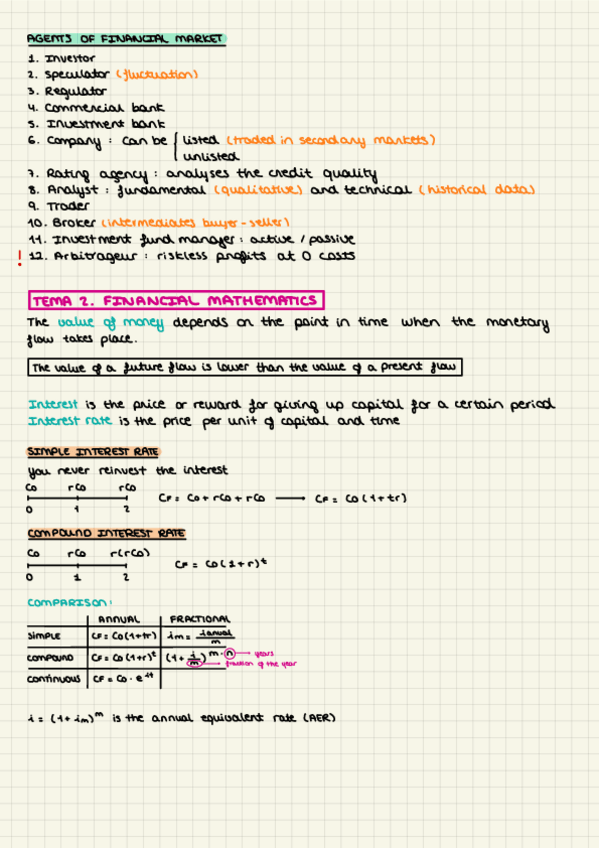 AGENTS OF FINANCIAL MARKET
1. Investor
2. Speculator (fluctuation)
3. Regulator
4. Commercial bank
5. Investment bank
6. Company : Can be { listed (traded in secondary markets)
unlisted
7. Rating agency : analyses the credit quality
8. Analyst : fundamental (qualitative) and technical (historical data)
9. Trader
10. Broker (intermediates buyer-seller)
11. Investment fund manager : active / passive
! 12. Arbitrageur : riskless profits at 0 costs
TEMA 2. FINANCIAL MATHEMATICS
The value of money depends on the point in time when the monetary
flow takes place.
The value of a future flow is lower than the value of a present flow
Interest is the price or reward for giving up capital for a certain period
Interest rate is the price per unit of capital and time
SIMPLE INTEREST RATE
you never reinvest the interest
C0 rC0 rC0
0 1 2
CF = C0 + rC0 + rC0 → CF = C0 (1+tr)
COMPOUND INTEREST RATE
C0 rC0 r(rC0)
0 1 2
CF = C0 (1+r)^t
COMPARISON:
ANNUAL FRACTIONAL
SIMPLE CF = C0 (1+tr) im = ianual/m
COMPOUND CF = C0 (1+r)^t (1 + i/m)^m·n → years
→ fraction of the year
CONTINUOUS CF = C0 · e^it
i = (1+im)^m is the annual equivalent rate (AER)